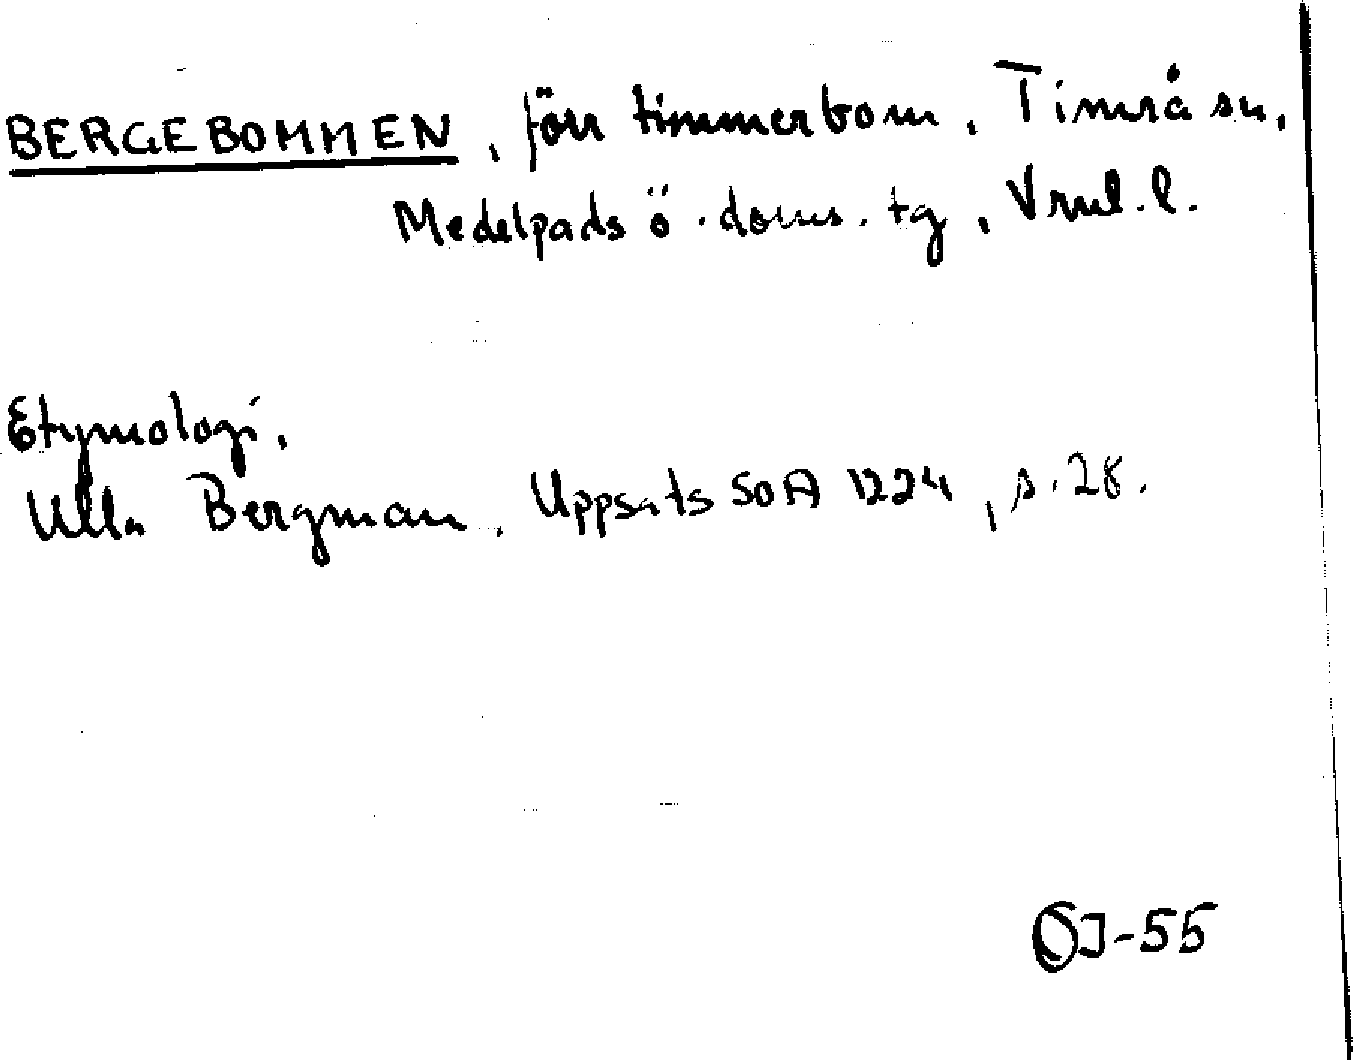 BERGEBOMMEN, förr timmerbom, Timrå sn,
Medelpads ö. doms. tg, Vrnl. l.
Etymologi.
Ulla Bergman, Uppsats SOA 1224, s. 28.
-55